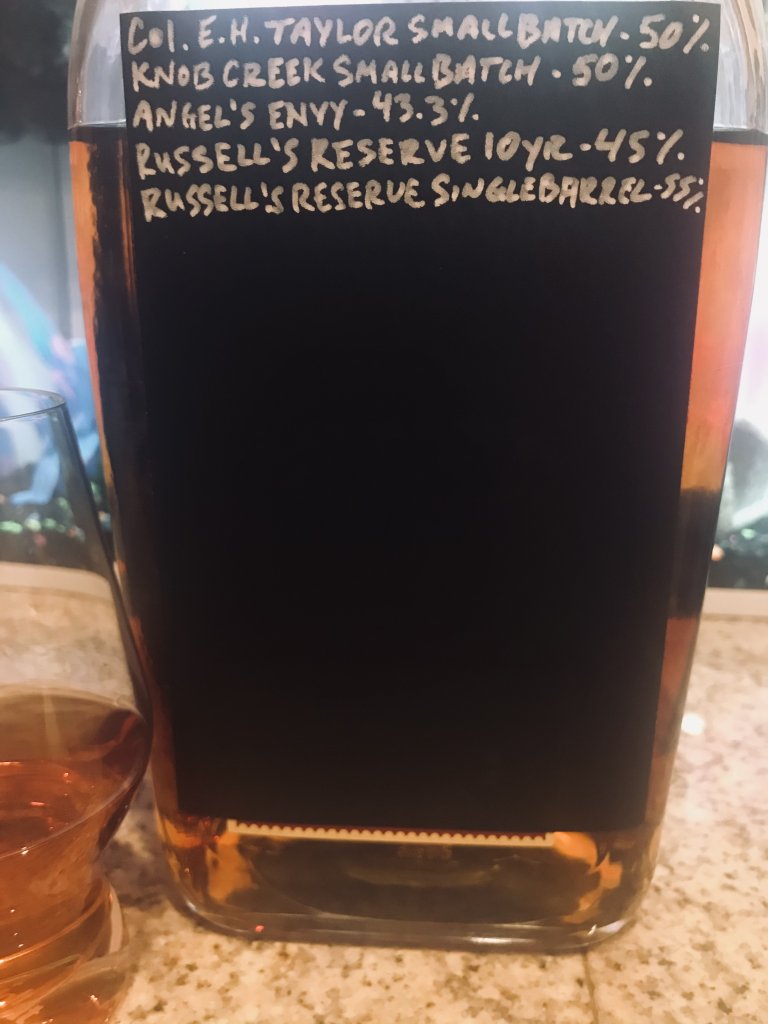 Col. E.H. TAYLOR SMALL BATCH - 50%
KNOB CREEK SMALL BATCH - 50%
ANGEL'S ENVY - 43.3%
RUSSELL'S RESERVE 10YR - 45%
RUSSELL'S RESERVE SINGLE BARREL - 55%